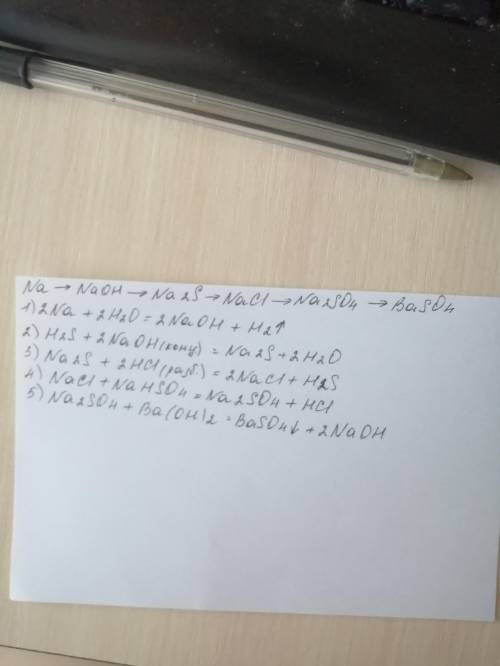 Na → NaOH → Na2S → NaCl → Na2SO4 → BaSO4
1) 2Na + 2H2O = 2NaOH + H2↑
2) H2S + 2NaOH(конц) = Na2S + 2H2O
3) Na2S + 2HCl(разб.) = 2NaCl + H2S
4) NaCl + NaHSO4 = Na2SO4 + HCl
5) Na2SO4 + Ba(OH)2 = BaSO4↓ + 2NaOH